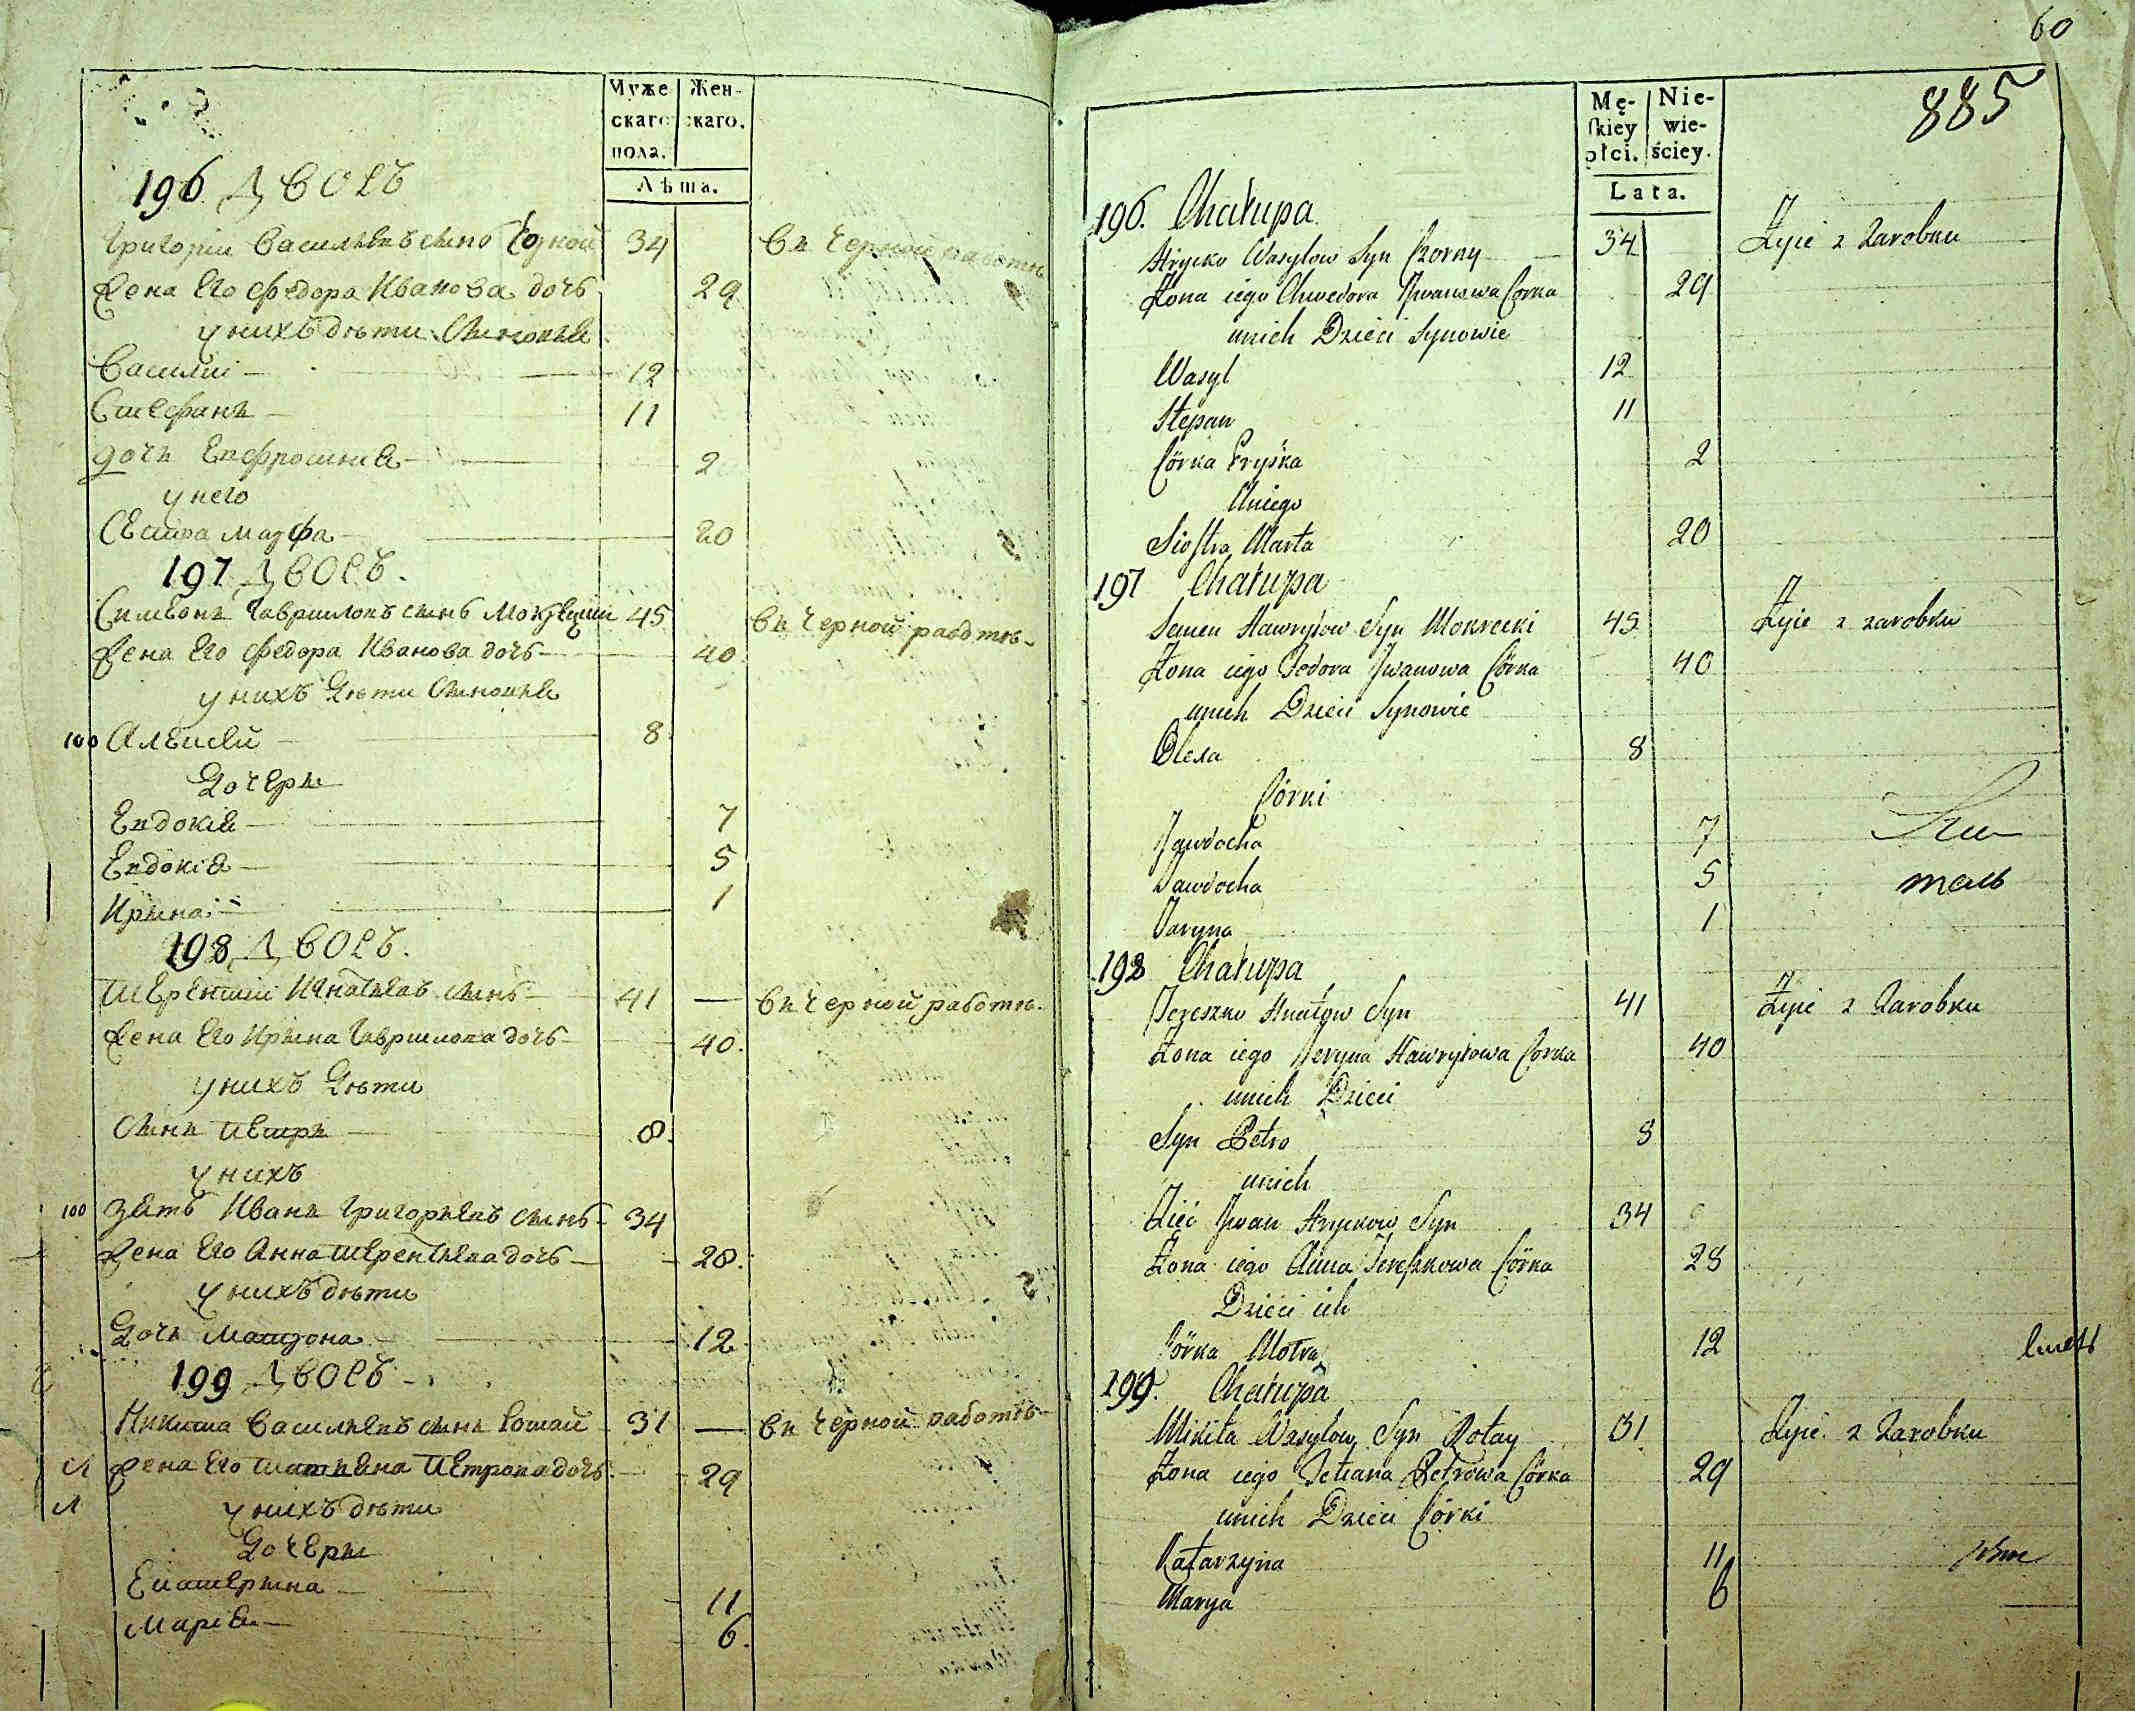 Муже Жен-
скаго скаго.
пола.
Лѣта.
196 Дворъ
Григорій Васильевъ сынъ Чорной 34 въ черной работѣ
Жена Его Федора Иванова дочь 29
у нихъ дѣти Сыновья
Василій 12
Стефанъ 11
дочь Евфросинія 2
у него
Сестра Марфа 20
197 Дворъ.
Симеонъ Гавриловъ сынъ Мокрецкій 45 въ черной работѣ
Жена Его Федора Иванова дочь 40
у нихъ Дѣти Сыновья
100 Алексей 8
Дочери
Евдокія 7
Евдокія 5
Ирина 1
198 Дворъ.
Терентій Игнатьевъ сынъ 41 въ черной работѣ.
Жена Его Ирина Гаврилова дочь 40.
у нихъ Дѣти
Сынъ Петръ 8.
у нихъ
100 Зять Иванъ Григорьевъ сынъ 34
Жена Его Анна Терентьева дочь 28.
у нихъ дѣти
Дочь Матрона 12.
199 Дворъ
Никита Васильевъ сынъ Ротай 31 въ черной работѣ
Жена Его Татьяна Петрова дочь 29
у нихъ дѣти
Дочери
Екатерина 11
Марія 6.
60
885
Mę- Nie-
skiey wie-
płci. ściey.
Lata.
196. Chałupa
Hrycko Wasylow Syn Czorny 34 Żyie z Zarobku
Żona iego Chwedora Jwanowa Corka 29
unich Dzieci Synowie
Wasyl 12
Stepan 11
Córka Pryśka 2
Uniego
Siostra Marta 20
197 Chałupa
Semen Hawryłow Syn Mokrecki 45 Żyie z zarobku
Żona iego Fedora Jwanowa Córka 40
unich Dzieci Synowie
Olexa 8
Córki
Jawdocha 7
Jawdocha 5 тель
Jaryna 1
198 Chałupa
Tereszko Hnatow Syn 41 Żyie z Zarobku
Żona iego Jeryna Hawryłowa Corka 40
unich Dzieci
Syn Petro 8
unich
Zięć Jwan Hryckow Syn 34
Żona iego Anna Tereszkowa Córka 28
Dzieci ich
Córka Motra 12
199. Chałupa
Mikita Wasylow Syn Rotay 31 Żyie z Zarobku
Żona iego Tetiana Petrowa Córka 29
unich Dzieci Córki
Katarzyna 11
Marya 6